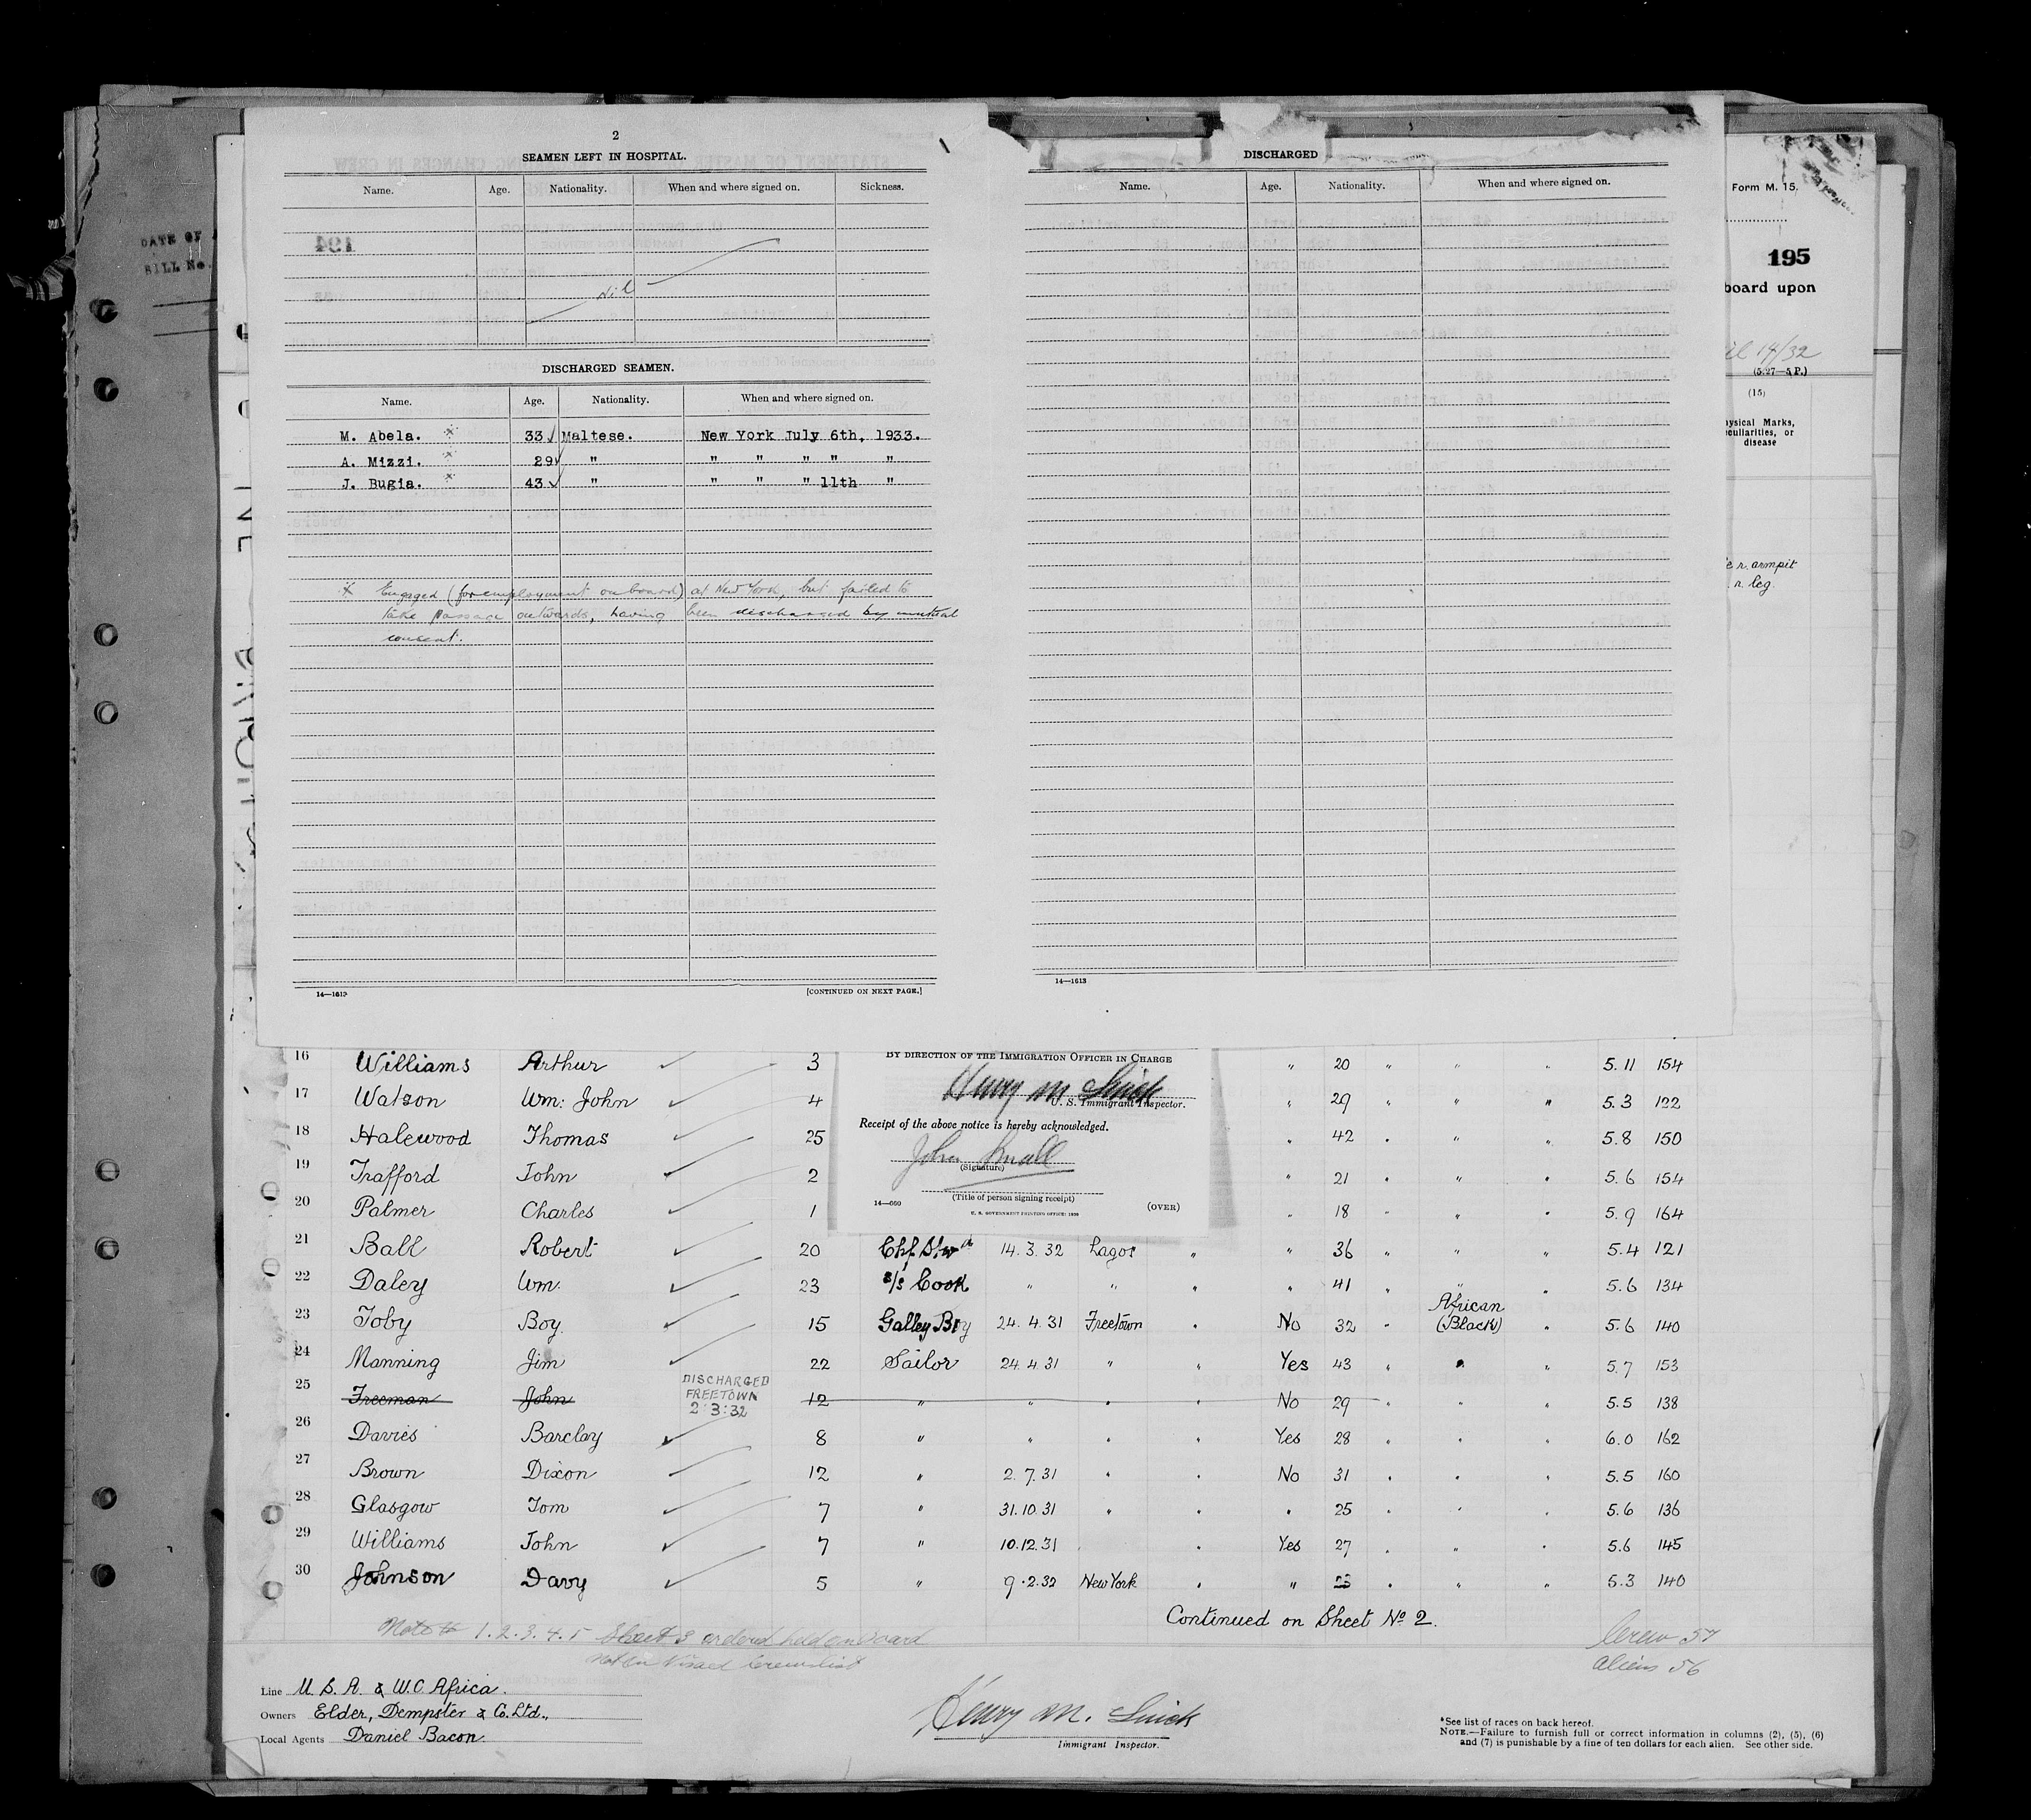 DATE OF
BILL No.
2
SEAMEN LEFT IN HOSPITAL.
Name. Age. Nationality. When and where signed on. Sickness.
194
Nil
DISCHARGED SEAMEN.
Name. Age. Nationality. When and where signed on.
M. Abela. x 33 ✓ Maltese. New York July 6th, 1933.
A. Mizzi. x 29 ✓ " " " " " "
J. Bugia. x 43 ✓ " " " " 11th "
x Engaged (for employment on board) at New York, but failed to
take passage outwards, having been discharged by mutual
consent.
14—1613 [CONTINUED ON NEXT PAGE.]
DISCHARGED
Name. Age. Nationality. When and where signed on.
14—1613
Form M. 15.
195
board upon
14/32
(5-27—5 P.)
(15)
ysical Marks,
eculiarities, or
disease
r. armpit
r. leg.
BY DIRECTION OF THE IMMIGRATION OFFICER IN CHARGE
Henry M
U. S. Immigrant Inspector.
Receipt of the above notice is hereby acknowledged.
John
(Signature)
(Title of person signing receipt)
14—
U. S. GOVERNMENT PRINTING OFFICE: 1930
(OVER)
16 Williams Arthur ✓ 3 " 20 " " " 5.11 154
17 Watson Wm: John ✓ 4 " 29 " " " 5.3 122
18 Halewood Thomas ✓ 25 " 42 " " " 5.8 150
19 Trafford John ✓ 2 " 21 " " " 5.6 154
20 Palmer Charles ✓ 1 " 18 " " " 5.9 164
21 Ball Robert ✓ 20 Chf. Stwd 14.3.32 Lagos " " 36 " " " 5.4 121
22 Daley Wm. ✓ 23 s/s Cook " " " " 41 " " " 5.6 134
23 Toby Boy. ✓ 15 Galley Boy 24.4.31 Freetown " No 32 " African (Black) " 5.6 140
24 Manning Jim ✓ 22 Sailor 24.4.31 " " Yes 43 " " " 5.7 153
DISCHARGED
FREETOWN
2:3:32
25 Freeman John 12 " " " " No 29 " " " 5.5 138
26 Davies Barclay ✓ 8 " " " " Yes 28 " " " 6.0 162
27 Brown Dixon ✓ 12 " 2.7.31 " " No 31 " " " 5.5 160
28 Glasgow Tom ✓ 7 " 31.10.31 " " " 25 " " " 5.6 136
29 Williams John ✓ 7 " 10.12.31 " " Yes 27 " " " 5.6 145
30 Johnson Davy ✓ 5 " 9.2.32 New York " " 23 " " " 5.3 140
Continued on Sheet No 2.
1.2.3.4.5 Sheet 3 ordered held on board
Not on Visaed Crewlist
Crew 57
Aliens 56
Line U.S.A. & W.C. Africa.
Owners Elder, Dempster & Co. Ltd.,
Local Agents Daniel Bacon.
Henry M.
Immigrant Inspector.
*See list of races on back hereof.
NOTE.—Failure to furnish full or correct information in columns (2), (5), (6)
and (7) is punishable by a fine of ten dollars for each alien. See other side.